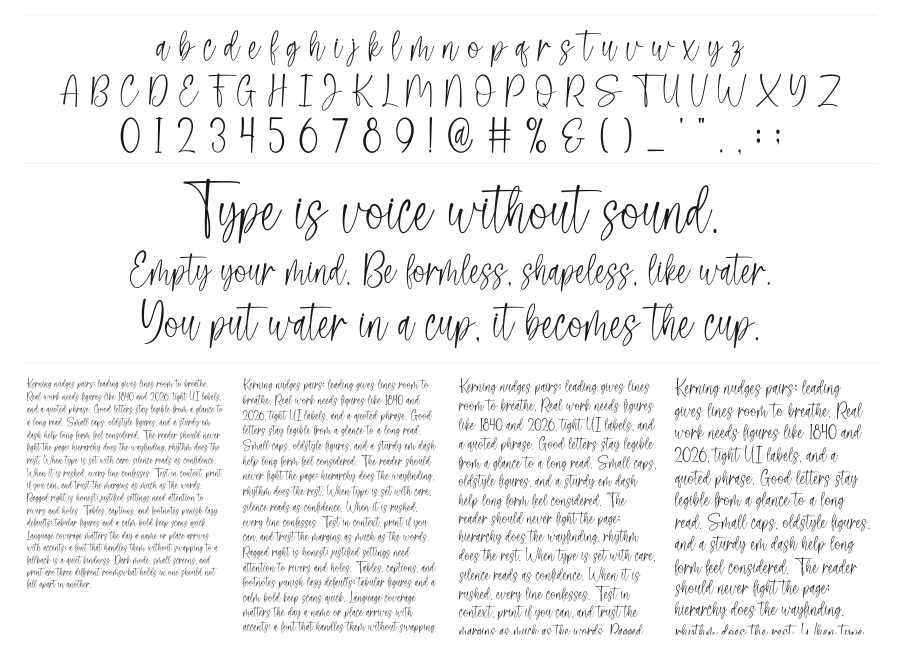 a b c d e f g h i j k l m n o p q r s t u v w x y z
A B C D E F G H I J K L M N O P Q R S T U V W X Y Z
0 1 2 3 4 5 6 7 8 9 ! @ # % & ( ) _ ' " . , : ;
Type is voice without sound.
Empty your mind. Be formless, shapeless, like water.
You put water in a cup, it becomes the cup.
Kerning nudges pairs: leading gives lines room to breathe.
Real work needs figures like 1840 and 2026, tight UI labels,
and a quoted phrase. Good letters stay legible from a glance to
a long read. Small caps, oldstyle figures, and a sturdy em
dash help long form feel considered. The reader should never
fight the page: hierarchy does the wayfinding, rhythm does the
rest. When type is set with care, silence reads as confidence.
When it is rushed, every line confesses. Test in context, print
if you can, and trust the margins as much as the words.
Ragged right is honest: justified settings need attention to
rivers and holes. Tables, captions, and footnotes punish lazy
defaults: tabular figures and a calm bold keep scans quick.
Language coverage matters the day a name or place arrives
with accents: a font that handles them without swapping to a
fallback is a quiet kindness. Dark mode, small screens, and
print are three different rooms:what holds in one should not
fall apart in another.
Kerning nudges pairs: leading gives lines room to
breathe. Real work needs figures like 1840 and
2026, tight UI labels, and a quoted phrase. Good
letters stay legible from a glance to a long read.
Small caps, oldstyle figures, and a sturdy em dash
help long form feel considered. The reader should
never fight the page: hierarchy does the wayfinding,
rhythm does the rest. When type is set with care,
silence reads as confidence. When it is rushed,
every line confesses. Test in context, print if you
can, and trust the margins as much as the words.
Ragged right is honest: justified settings need
attention to rivers and holes. Tables, captions, and
footnotes punish lazy defaults: tabular figures and a
calm bold keep scans quick. Language coverage
matters the day a name or place arrives with
accents: a font that handles them without swapping
Kerning nudges pairs: leading gives lines
room to breathe. Real work needs figures
like 1840 and 2026, tight UI labels, and
a quoted phrase. Good letters stay legible
from a glance to a long read. Small caps,
oldstyle figures, and a sturdy em dash
help long form feel considered. The
reader should never fight the page:
hierarchy does the wayfinding, rhythm
does the rest. When type is set with care,
silence reads as confidence. When it is
rushed, every line confesses. Test in
context, print if you can, and trust the
margins as much as the words. Ragged
Kerning nudges pairs: leading
gives lines room to breathe. Real
work needs figures like 1840 and
2026, tight UI labels, and a
quoted phrase. Good letters stay
legible from a glance to a long
read. Small caps, oldstyle figures,
and a sturdy em dash help long
form feel considered. The reader
should never fight the page:
hierarchy does the wayfinding,
rhythm does the rest. When type